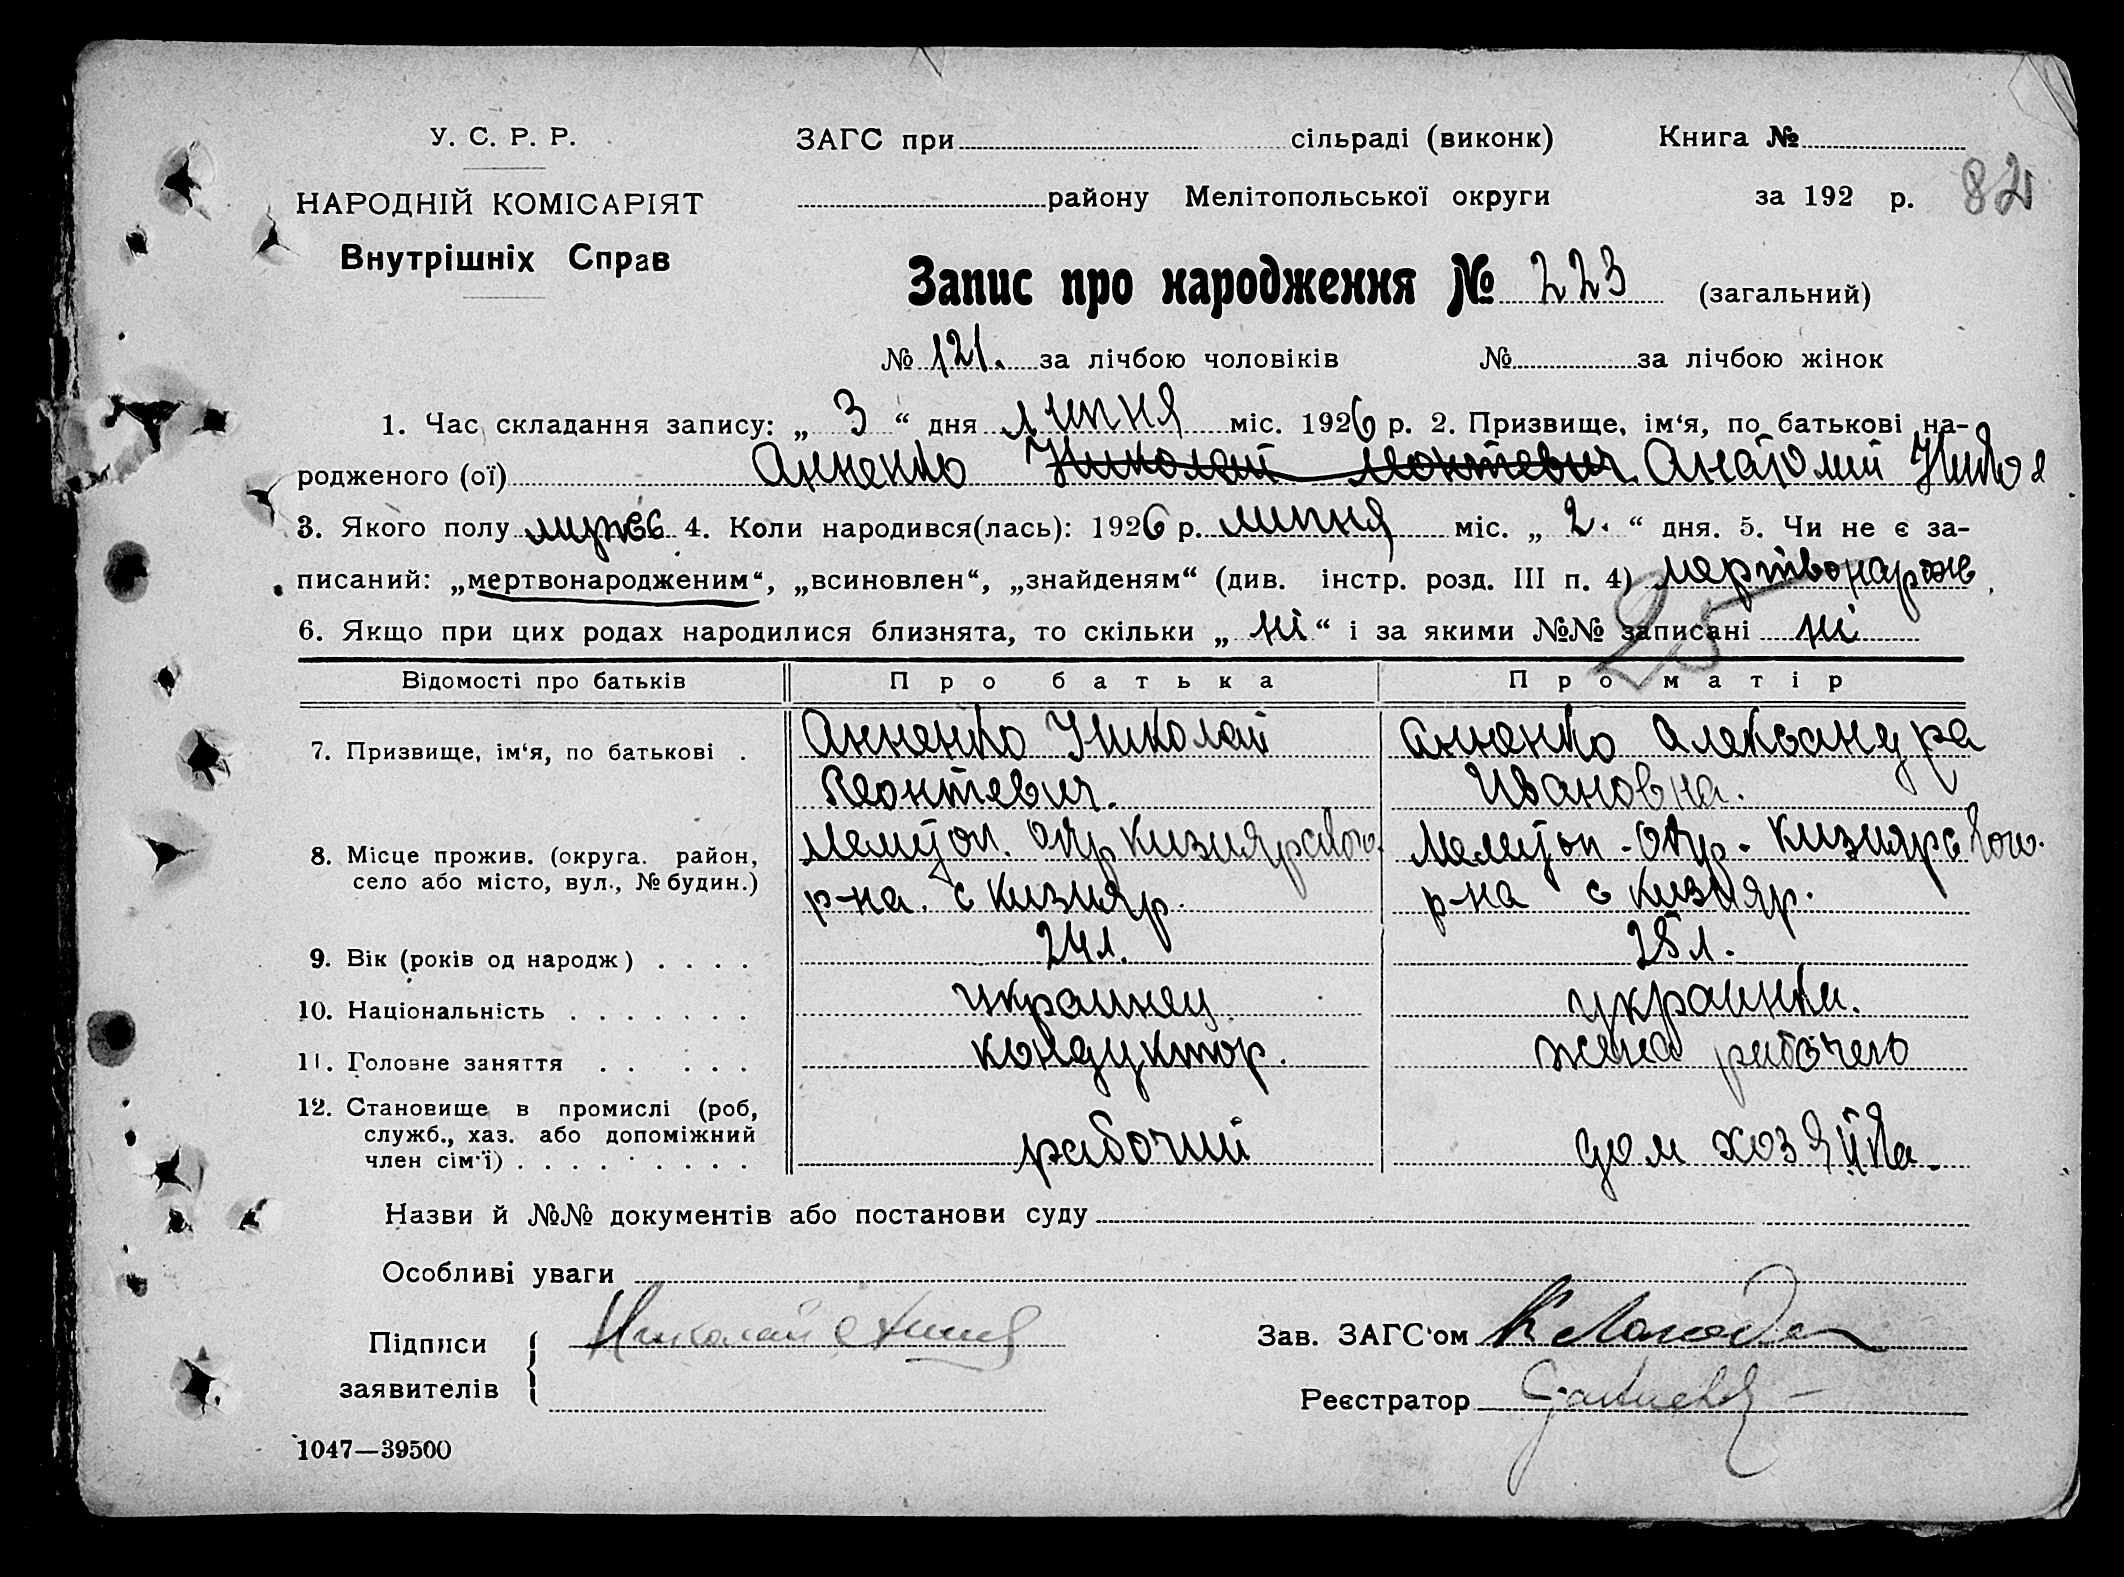 У. С. Р. Р.
НАРОДНІЙ КОМІСАРІЯТ
Внутрішніх Справ
ЗАГС при сільраді (виконк) Книга №
району Мелітопольської округи за 192 р. 82
Запис про народження № 223 (загальний)
№ 121. за лічбою чоловіків № за лічбою жінок
1. Час складання запису: „ 3 “ дня липня міс. 1926 р. 2. Призвище, ім‘я, по батькові на-
родженого (ої) Анненко Николай Леонтевич Анатолий
3. Якого полу 4. Коли народився(лась): 1926 р. липня міс. „ 2. “ дня. 5. Чи не є за-
писаний: „мертвонародженим“, „всиновлен“, „знайденям“ (див. інстр. розд. III п. 4) мертвонарож
25
6. Якщо при цих родах народилися близнята, то скільки „ ні “ і за якими №№ записані ні
Відомості про батьків Про батька Про матір
7. Призвище, ім‘я, по батькові . Анненко Николай Анненко Александра
Леонтевич. Ивановна.
8. Місце прожив. (округа. район, Мелитоп. окр Кизиярского Мелитоп. окр. Кизиярского.
село або місто, вул., № будин.) р-на. с Кизияр. р-на с Кизияр.
9. Вік (років од народж) . . . . 24 л. 25 л.
10. Національність . . . . . . . украинец украинка.
11. Головне заняття . . . . . кондуктор. жена рабочего
12. Становище в промислі (роб,
служб., хаз. або допоміжний
член сім‘ї) . . . . . . . . . рабочий дом хозяйка.
Назви й №№ документів або постанови суду
Особливі уваги
Підписи Николай
заявителів
Зав. ЗАГС‘ом
Реєстратор
1047—39500